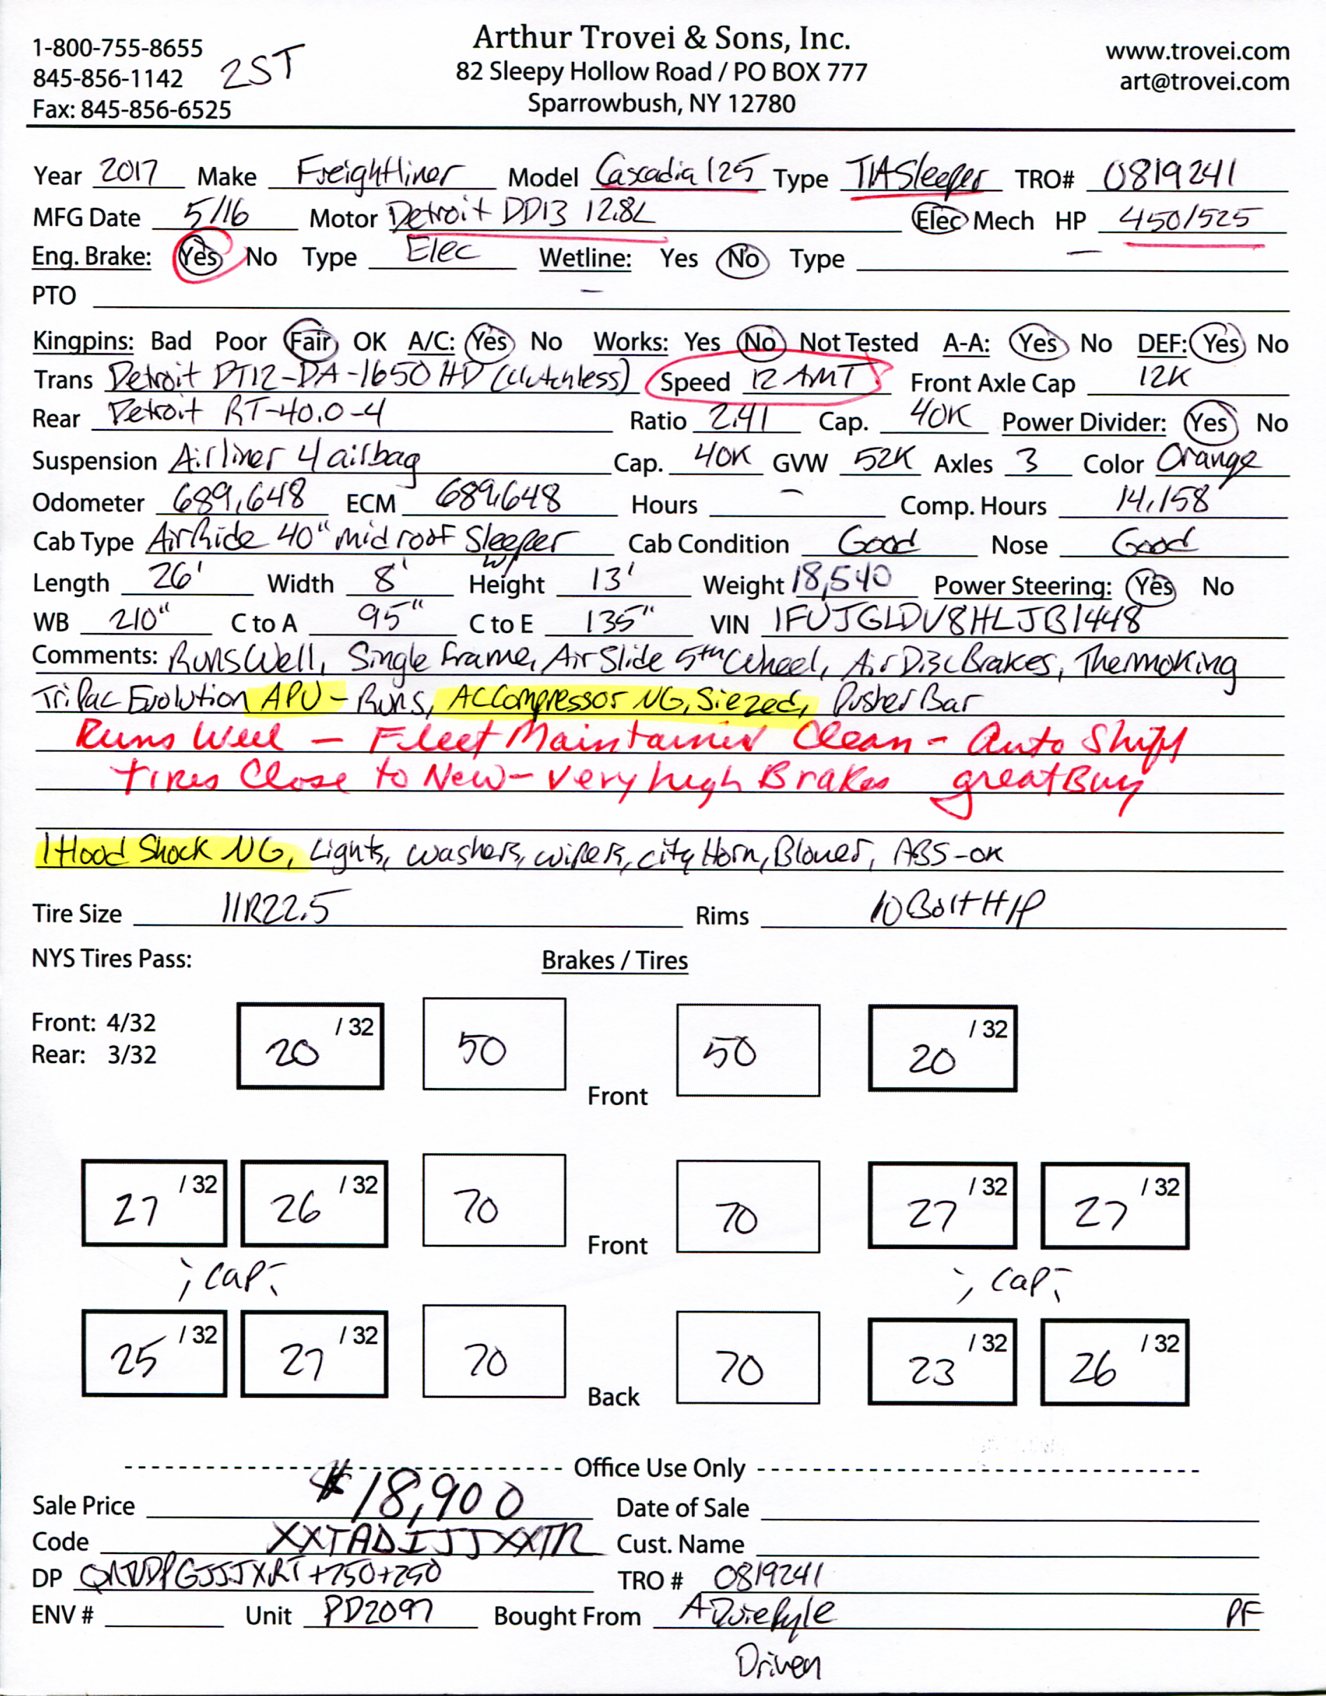 Arthur Trovei & Sons, Inc.
1-800-755-8655 82 Sleepy Hollow Road / PO BOX 777 www.trovei.com
845-856-1142 2ST Sparrowbush, NY 12780 art@trovei.com
Fax: 845-856-6525
Year 2017 Make Freightliner Model Cascadia 125 Type T/A Sleeper TRO# 0819241
MFG Date 5/16 Motor Detroit DD13 12.8L Elec Mech HP 450/525
Eng. Brake: Yes No Type Elec Wetline: Yes No Type
PTO
Kingpins: Bad Poor Fair OK A/C: Yes No Works: Yes No Not Tested A-A: Yes No DEF: Yes No
Trans Detroit DT12-DA-1650 HD (Clutchless) Speed 12 AMT Front Axle Cap 12K
Rear Detroit RT-40.0-4 Ratio 2.41 Cap. 40K Power Divider: Yes No
Suspension Airliner 4 airbag Cap. 40K GVW 52K Axles 3 Color Orange
Odometer 689,648 ECM 689,648 Hours – Comp. Hours 14,158
Cab Type AirRide 40" mid roof Sleeper Cab Condition Good Nose Good
Length 26' Width 8' Height w/ 13' Weight 18,540 Power Steering: Yes No
WB 210" C to A 95" C to E 135" VIN 1FUJGLDV8HLJB1448
Comments: Runs Well, Single Frame, Air Slide 5th Wheel, Air Disc Brakes, Thermoking
Tri Pac Evolution APU - Runs, AC Compressor NG, Siezed, Pusher Bar
Runs Well - Fleet Maintained Clean - Auto Shift
Tires Close to New - Very high Brakes great Buy
1 Hood Shock NG, Lights, washers, wipers, city Horn, Blower, ABS-OK
Tire Size 11R22.5 Rims 10 Bolt H/P
NYS Tires Pass: Brakes / Tires
Front: 4/32
Rear: 3/32
20 /32 50 Front 50 20 /32
27 /32 26 /32 70 Front 70 27 /32 27 /32
; cap; ; cap;
25 /32 27 /32 70 Back 70 23 /32 26 /32
Office Use Only
Sale Price $18,900 Date of Sale
Code XXTADIJJXXTR Cust. Name
DP +250+250 TRO # 0819241
ENV # Unit PD2097 Bought From PF
Driven